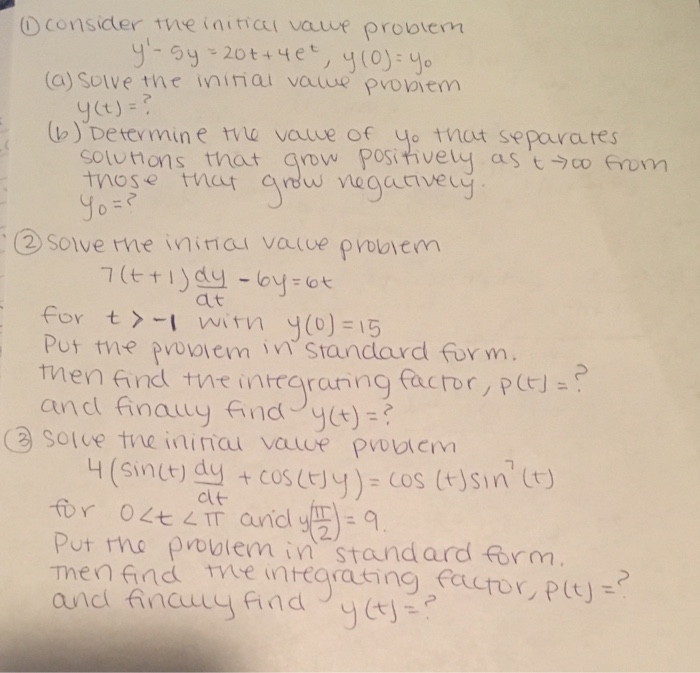 ① consider the initial value problem
y' - 5y = 20t + 4e^t, y(0) = y₀
(a) Solve the initial value problem
y(t) = ?
(b) Determine the value of y₀ that separates
solutions that grow positively as t → ∞ from
those that grow negatively.
y₀ = ?
② Solve the initial value problem
7(t+1) dy/dt - 6y = 6t
for t > -1 with y(0) = 15
Put the problem in standard form.
Then find the integrating factor, p(t) = ?
and finally find y(t) = ?
③ Solve the initial value problem
4(sin(t) dy/dt + cos(t)y) = cos(t)sin⁷(t)
for 0 < t < π and y(π/2) = 9.
Put the problem in standard form.
Then find the integrating factor, p(t) = ?
and finally find y(t) = ?